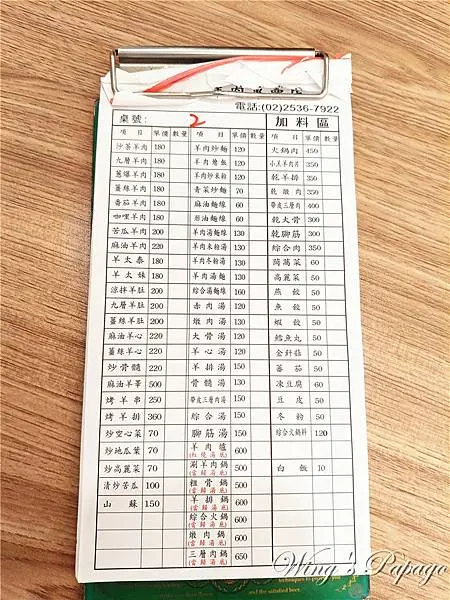 電話:(02)2536-7922
桌號: 2 加料區
項目 單價 數量 項目 單價 數量 項目 單價 數量
沙茶羊肉 180 羊肉炒麵 120 火鍋肉 450
九層羊肉 180 羊肉燴飯 120 小羔羊肉片 350
蔥爆羊肉 180 羊肉炒米粉 120 乾羊排 350
薑絲羊肉 180 青菜炒麵 70 乾燉肉 350
番茄羊肉 180 麻油麵線 60 帶皮三層肉 400
咖哩羊肉 180 麻油麵線 60 乾大骨 300
苦瓜羊肉 200 羊肉湯麵線 130 乾腳筋 300
麻油羊肉 220 羊肉米粉湯 130 綜合肉 350
羊太泰 180 羊肉冬粉湯 130 茼萵菜 60
羊太妹 180 羊肉湯麵 130 高麗菜 50
涼拌羊肚 200 綜合湯麵線 160 燕餃 50
九層羊肚 200 赤肉湯 130 魚餃 50
薑絲羊肚 200 燉肉湯 130 蝦餃 50
麻油羊心 220 大骨湯 130 鱈魚丸 50
薑絲羊心 220 羊心湯 130 金針菇 50
炒骨髓 220 羊排湯 150 蕃茄 50
麻油羊睪 500 骨髓湯 130 凍豆腐 60
烤羊串 250 帶皮三層肉湯 150 豆皮 50
烤羊排 360 綜合湯 150 冬粉 50
炒空心菜 70 腳筋湯 150 綜合火鍋料 120
炒地瓜葉 70 羊肉爐 (紅燒湯底) 600
炒高麗菜 70 涮羊肉鍋 (當歸湯底) 500 白飯 10
清炒苦瓜 100 粗骨鍋 (當歸湯底) 500
山蘇 150 羊排鍋 (當歸湯底) 600
綜合火鍋 (當歸湯底) 600
燉肉鍋 (當歸湯底) 600
三層肉鍋 (當歸湯底) 650
and the satisfied beer.
Wing's Papago